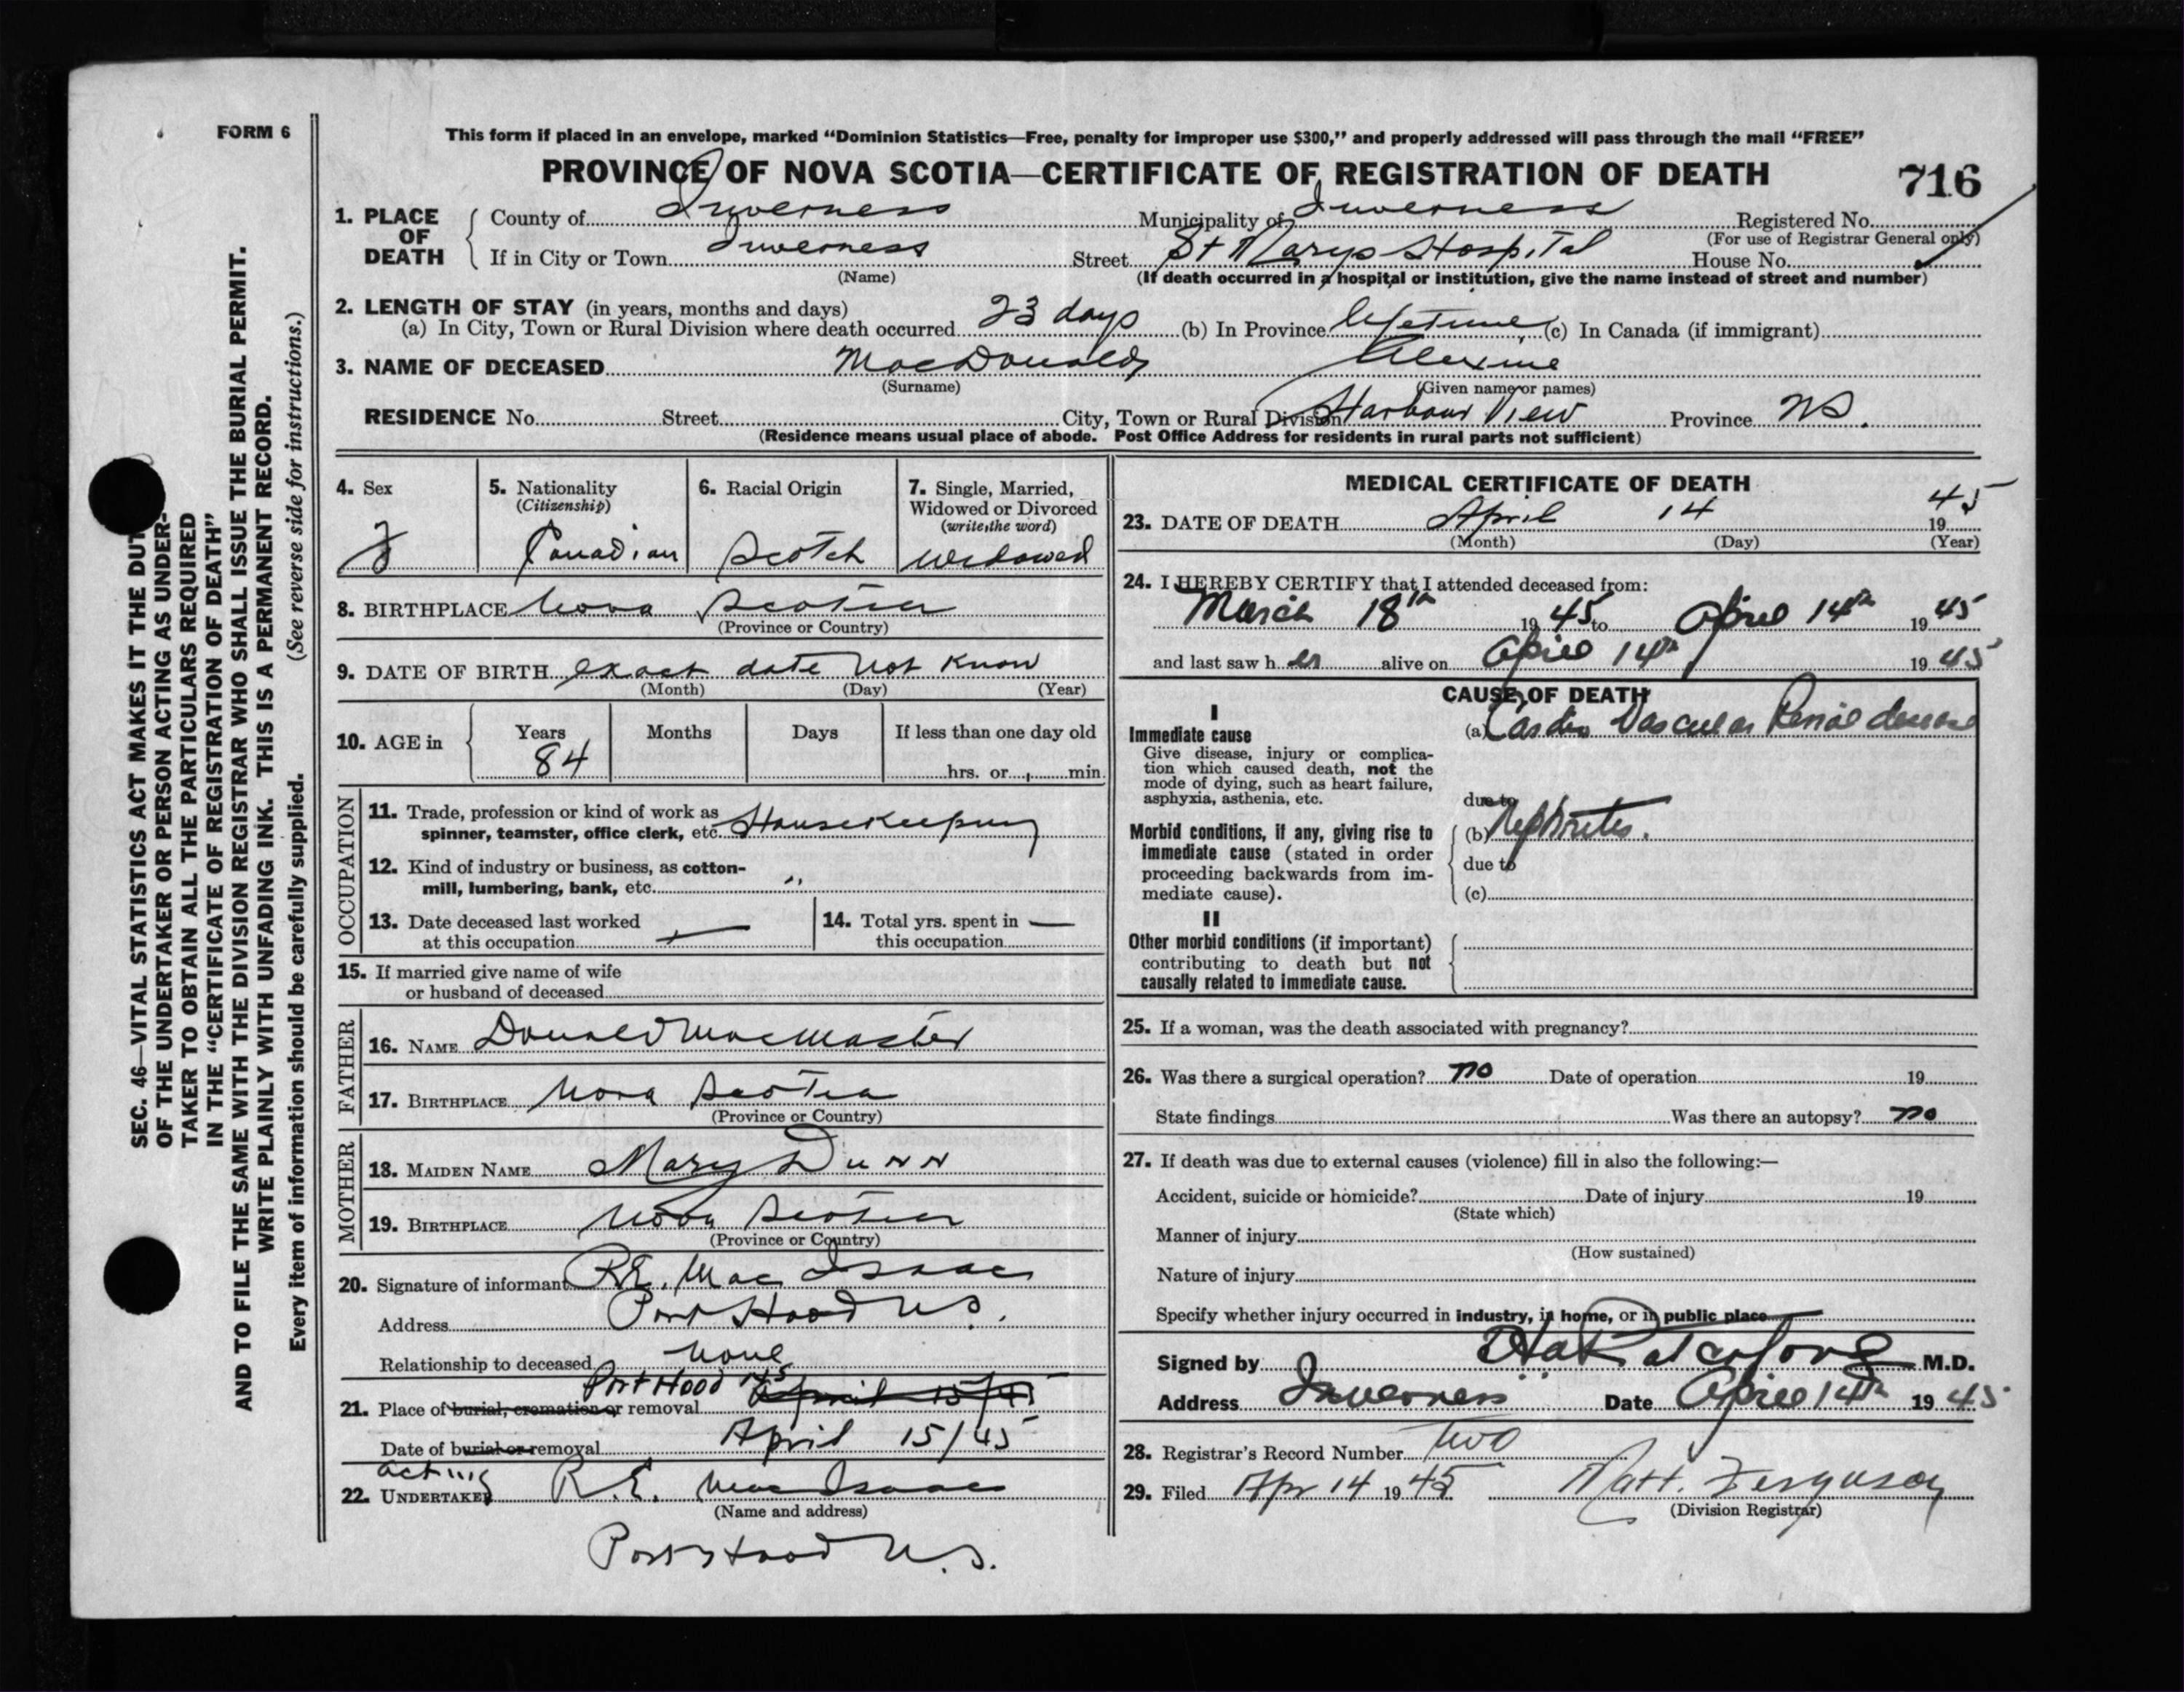 FORM 6
This form if placed in an envelope, marked “Dominion Statistics—Free, penalty for improper use $300,” and properly addressed will pass through the mail “FREE”
PROVINCE OF NOVA SCOTIA—CERTIFICATE OF REGISTRATION OF DEATH
716
1. PLACE OF DEATH
County of Inverness Municipality of Inverness Registered No.
(For use of Registrar General only)
If in City or Town Inverness Street St Marys Hospital House No.
(Name) (If death occurred in a hospital or institution, give the name instead of street and number)
2. LENGTH OF STAY (in years, months and days)
(a) In City, Town or Rural Division where death occurred 23 days (b) In Province lifetime (c) In Canada (if immigrant)
3. NAME OF DECEASED MacDonald Alexine
(Surname) (Given name or names)
RESIDENCE No. Street City, Town or Rural Division Harbour View Province NS.
(Residence means usual place of abode. Post Office Address for residents in rural parts not sufficient)
4. Sex
F
5. Nationality
(Citizenship)
Canadian
6. Racial Origin
Scotch
7. Single, Married,
Widowed or Divorced
(write the word)
Widowed
8. BIRTHPLACE Nova Scotia
(Province or Country)
9. DATE OF BIRTH exact date not know
(Month) (Day) (Year)
10. AGE in
Years Months Days If less than one day old
84 hrs. or min.
OCCUPATION
11. Trade, profession or kind of work as
spinner, teamster, office clerk, etc. Housekeeping
12. Kind of industry or business, as cotton-
mill, lumbering, bank, etc. "
13. Date deceased last worked
at this occupation —
14. Total yrs. spent in —
this occupation
15. If married give name of wife
or husband of deceased
FATHER
16. NAME Donald MacMaster
17. BIRTHPLACE Nova Scotia
(Province or Country)
MOTHER
18. MAIDEN NAME Mary Dunn
19. BIRTHPLACE Nova Scotia
(Province or Country)
20. Signature of informant R.E. Mac Isaac
Address Port Hood N.S.
Relationship to deceased None
Port Hood N.S.
21. Place of burial, cremation or removal April 15/45
Date of burial or removal April 15/45
acting
22. UNDERTAKER R.E. MacIsaac
(Name and address)
Port Hood N.S.
MEDICAL CERTIFICATE OF DEATH
23. DATE OF DEATH April 14 1945
(Month) (Day) (Year)
24. I HEREBY CERTIFY that I attended deceased from:
March 18th 1945 to April 14th 1945
and last saw her alive on April 14th 1945
CAUSE OF DEATH
I
Immediate cause
Give disease, injury or complica-
tion which caused death, not the
mode of dying, such as heart failure,
asphyxia, asthenia, etc.
(a) Cardio Vascular Renal disease
due to
Morbid conditions, if any, giving rise to
immediate cause (stated in order
proceeding backwards from im-
mediate cause).
(b) Nephrites.
due to
(c)
II
Other morbid conditions (if important)
contributing to death but not
causally related to immediate cause.
25. If a woman, was the death associated with pregnancy?
26. Was there a surgical operation? no Date of operation 19
State findings Was there an autopsy? no
27. If death was due to external causes (violence) fill in also the following:—
Accident, suicide or homicide? Date of injury 19
(State which)
Manner of injury
(How sustained)
Nature of injury
Specify whether injury occurred in industry, in home, or in public place
Signed by M.D.
Address Inverness Date April 14th 1945
28. Registrar's Record Number Two
29. Filed Apr 14 1945 Matt. Ferguson
(Division Registrar)
SEC. 46—VITAL STATISTICS ACT MAKES IT THE DUTY
OF THE UNDERTAKER OR PERSON ACTING AS UNDER-
TAKER TO OBTAIN ALL THE PARTICULARS REQUIRED
IN THE “CERTIFICATE OF REGISTRATION OF DEATH”
AND TO FILE THE SAME WITH THE DIVISION REGISTRAR WHO SHALL ISSUE THE BURIAL PERMIT.
WRITE PLAINLY WITH UNFADING INK. THIS IS A PERMANENT RECORD.
Every item of information should be carefully supplied. (See reverse side for instructions.)